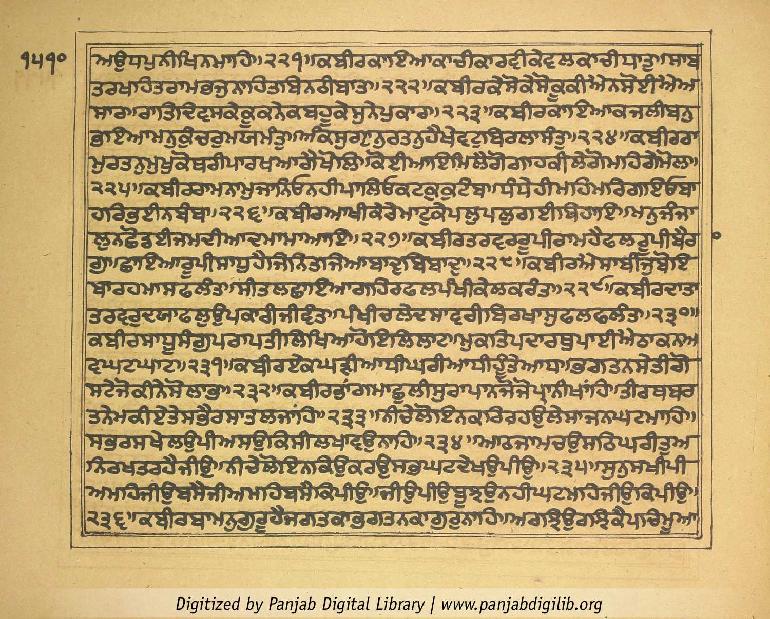 ੧੫੧੦
ਅਉਧਪੁਨੀਖਿਨਮਾਹਿ॥੨੨੧॥ਕਬੀਰਕਾਇਆਕਾਚੀਕਾਰਵੀਕੇਵਲਕਾਚੀਧਾਤੁ॥ਸਾਬ
ਤਰਖਹਿਤਰਾਮਭਜੁਨਾਹਿਤਬਿਨਠੀਬਾਤ॥੨੨੨॥ਕਬੀਰਕੇਸੋਕੇਸੋਕੂਕੀਐਨਸੋਈਐਅ
ਸਾਰ॥ਰਾਤਿਦਿਵਸਕੇਕੂਕਨੇਕਬਹੂਕੇਸੁਨੈਪੁਕਾਰ॥੨੨੩॥ਕਬੀਰਕਾਇਆਕਜਲੀਬਨੁ
ਭਇਆਮਨੁਕੁੰਚਰੁਮਯਮੰਤੁ॥ਅੰਕਸੁਗੵਾਨੁਰਤਨੁਹੈਖੇਵਟੁਬਿਰਲਾਸੰਤੁ॥੨੨੪॥ਕਬੀਰਰਾ
ਮਰਤਨੁਮੁਖੁਕੋਥਰੀਪਾਰਖਆਗੈਖੋਲਿ॥ਕੋਈਆਇਮਿਲੈਗੋਗਾਹਕੀਲੇਗੋਮਹਗੇਮੋਲ॥
੨੨੫॥ਕਬੀਰਰਾਮਨਾਮੁਜਾਨਿਓਨਹੀਪਾਲਿਓਕਟਕੁਕੁਟੰਬੁ॥ਧੰਧੇਹੀਮਹਿਮਰਿਗਇਓਬਾ
ਹਰਿਭਈਨਬੰਬ॥੨੨੬॥ਕਬੀਰਆਖੀਕੇਰੇਮਾਟੁਕੇਪਲੁਪਲੁਗਈਬਿਹਾਇ॥ਮਨੁਜੰਜਾ
ਲੁਨਛੋਡਈਜਮਦੀਆਦਮਾਮਾਆਇ॥੨੨੭॥ਕਬੀਰਤਰਵਰਰੂਪੀਰਾਮੁਹੈਫਲਰੂਪੀਬੈਰਾ
ਗੁ॥ਛਾਇਆਰੂਪੀਸਾਧੁਹੈਜਿਨਿਤਜਿਆਬਾਦੁਬਿਬਾਦੁ॥੨੨੮॥ਕਬੀਰਐਸਾਬੀਜੁਬੋਇ
ਬਾਰਹਮਾਸਫਲੰਤ॥ਸੀਤਲਛਾਇਆਗਹਿਰਫਲਪੰਖੀਕੇਲਕਰੰਤ॥੨੨੯॥ਕਬੀਰਦਾਤਾ
ਤਰਵਰੁਦਯਾਫਲੁਉਪਕਾਰੀਜੀਵੰਤ॥ਪੰਖੀਚਲੇਦਿਸਾਵਰੀਬਿਰਖਾਸੁਫਲਫਲੰਤ॥੨੩੦॥
ਕਬੀਰਸਾਧੂਸੰਗੁਪਰਾਪਤੀਲਿਖਿਆਹੋਇਲਿਲਾਟ॥ਮੁਕਤਿਪਦਾਰਥੁਪਾਈਐਠਾਕਨਅ
ਵਘਟਘਾਟ॥੨੩੧॥ਕਬੀਰਏਕਘੜੀਆਧੀਘਰੀਆਧੀਹੂੰਤੇਆਧ॥ਭਗਤਨਸੇਤੀਗੋ
ਸਟੇਜੋਕੀਨੇਸੋਲਾਭ॥੨੩੨॥ਕਬੀਰਭਾਂਗਮਾਛੁਲੀਸੁਰਾਪਾਨਜੋਜੋਪ੍ਰਾਨੀਖਾਂਹਿ॥ਤੀਰਥਬਰ
ਤਨੇਮਕੀਏਤੇਸਭੈਰਸਾਤਲਜਾਂਹਿ॥੨੩੩॥ਨੀਚੇਲੋਇਨਕਰਿਰਹਉਲੇਸਾਜਨਘਟਮਾਹਿ॥
ਸਭਰਸਖੇਲਉਪੀਅਸਉਕਿਸੀਲਖਾਵਉਨਾਹਿ॥੨੩੪॥ਆਠਜਾਮਚਉਸਠਿਘਰੀਤੁਅ
ਨਿਰਖਤਰਹੈਜੀਉ॥ਨੀਚੇਲੋਇਨਕਿਉਕਰਉਸਭਘਟਦੇਖਉਪੀਉ॥੨੩੫॥ਸੁਨੁਸਖੀਪੀ
ਅਮਹਿਜੀਉਬਸੈਜੀਅਮਹਿਬਸੈਕਿਪੀਉ॥ਜੀਉਪੀਉਬੂਝਉਨਹੀਘਟਮਹਿਜੀਉਕਿਪੀਉ॥
੨੩੬॥ਕਬੀਰਬਾਮਨੁਗੁਰੂਹੈਜਗਤਕਾਭਗਤਨਕਾਗੁਰੁਨਾਹਿ॥ਅਰਝਿਉਰਝਿਕੈਪਚਿਮੂਆ
Digitized by Panjab Digital Library | www.panjabdigilib.org